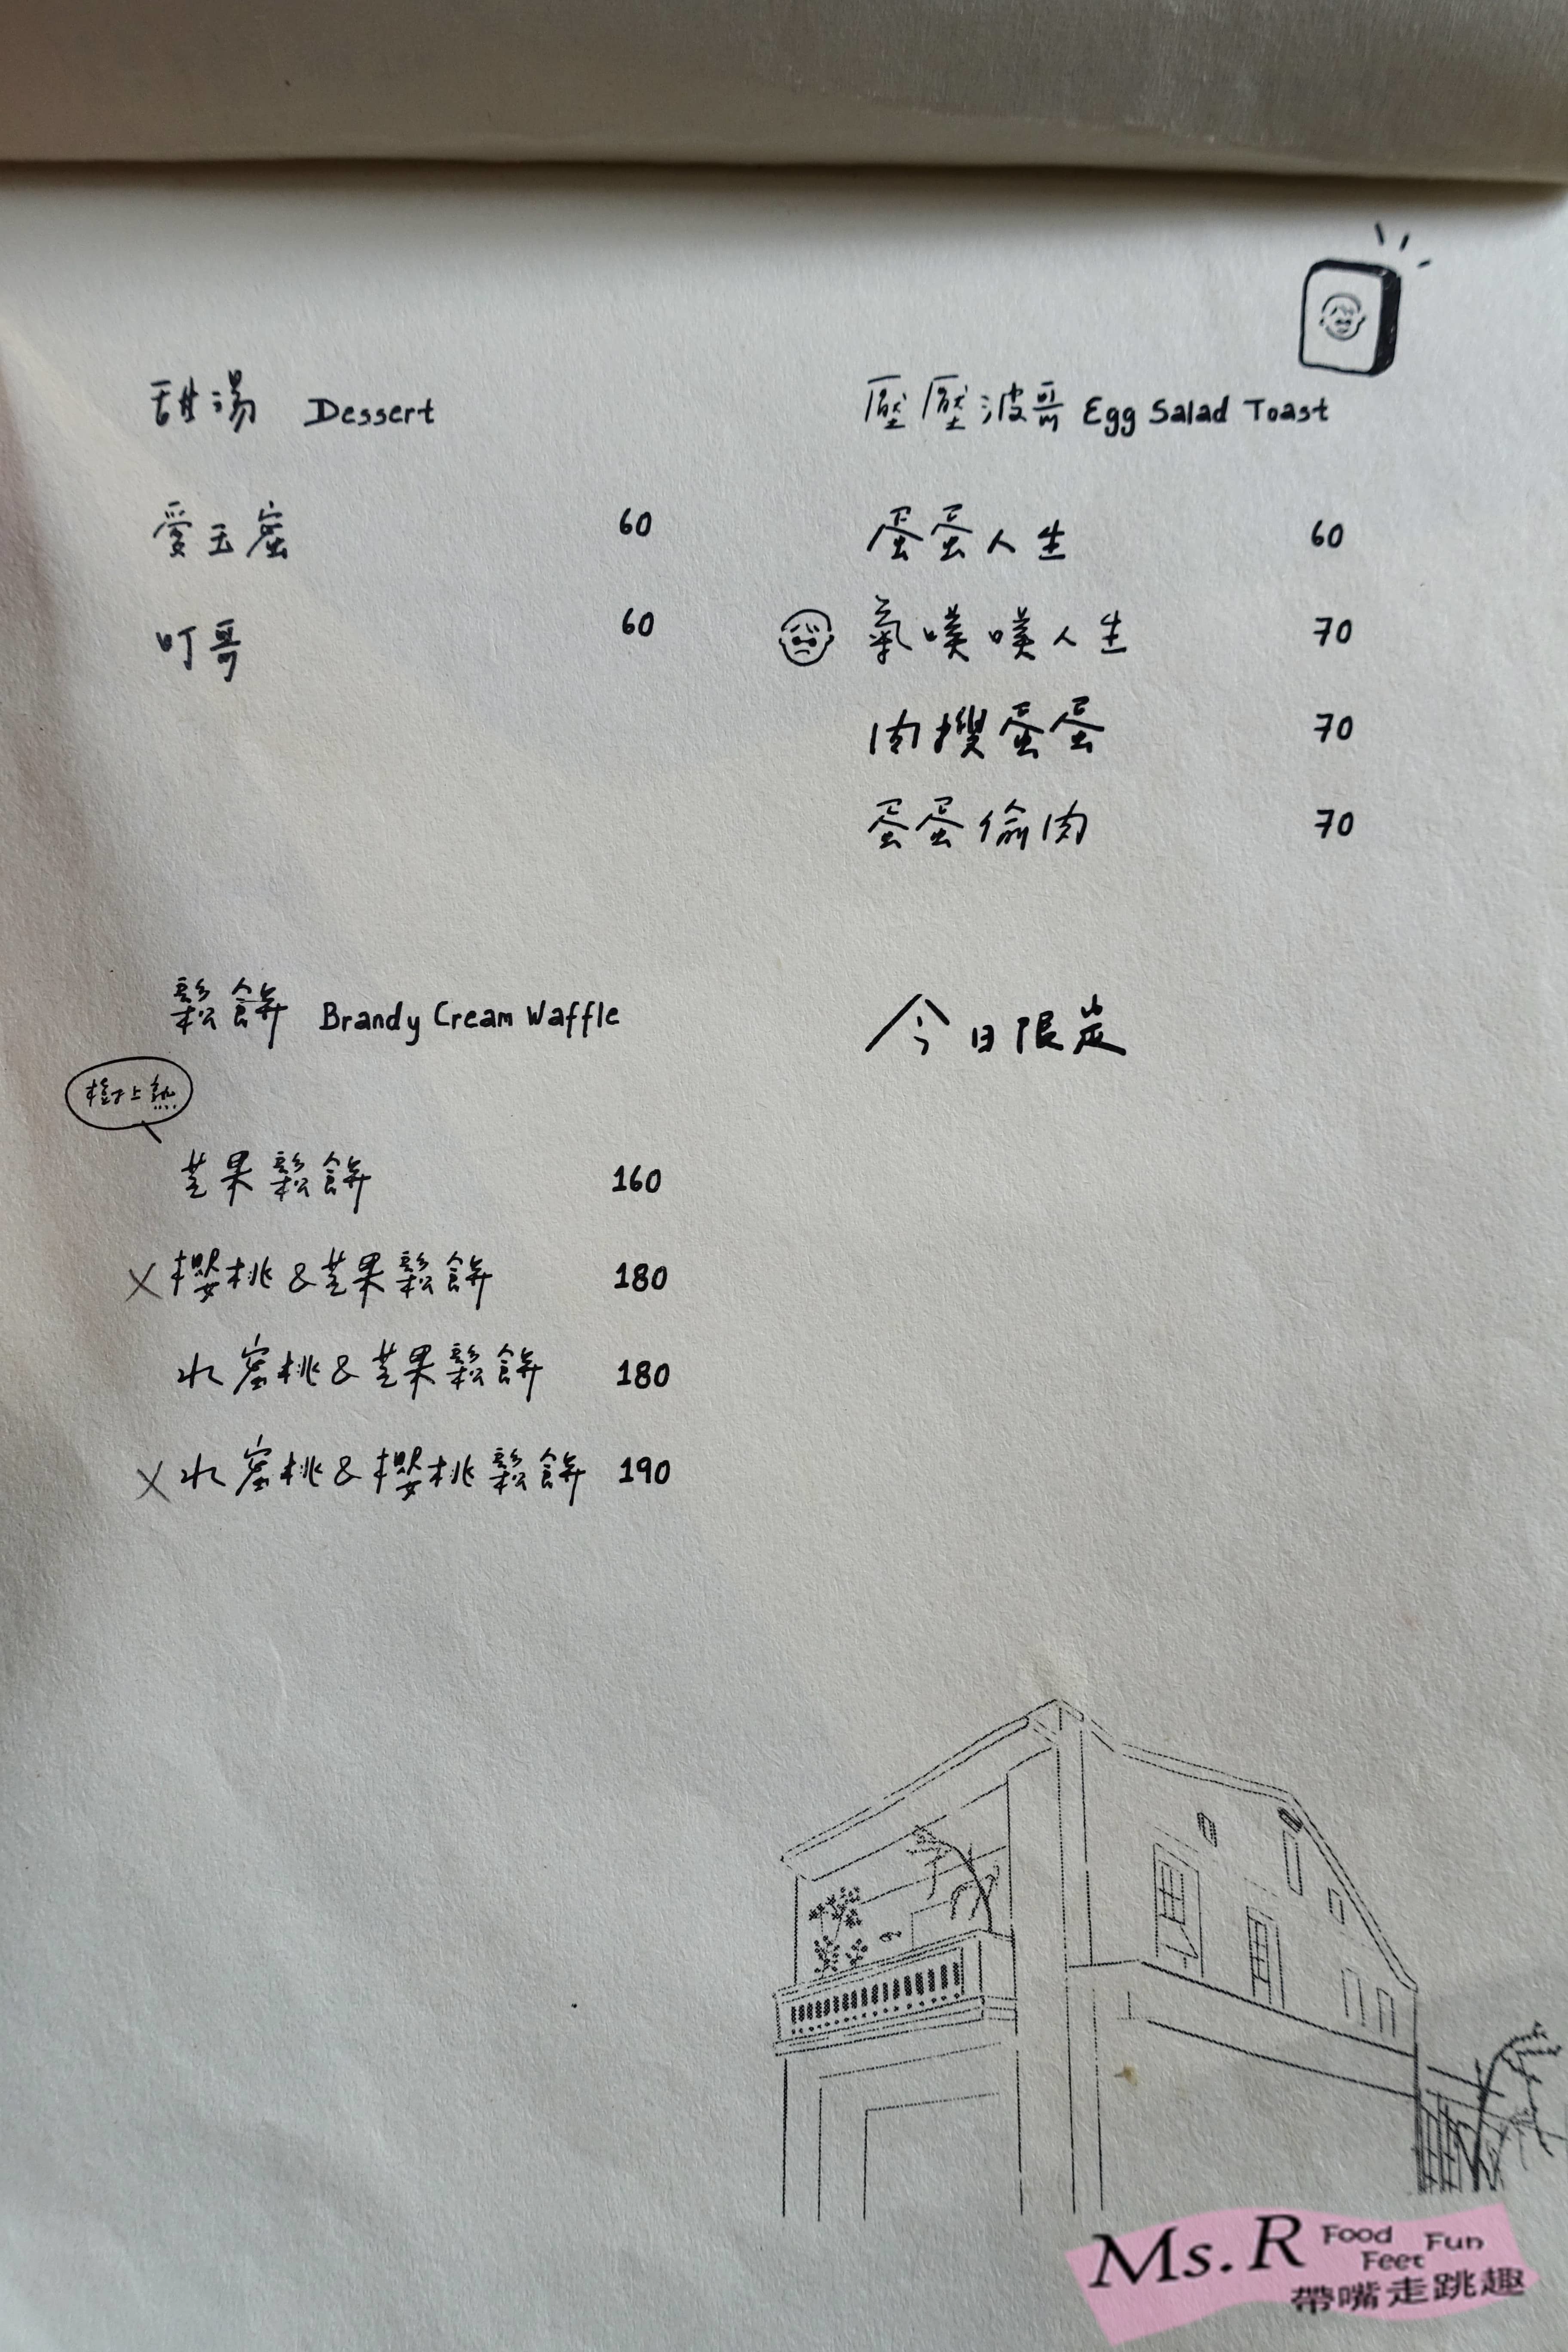 甜湯 Dessert
愛玉窟 60
叮哥 60
壓壓波哥 Egg Salad Toast
蛋蛋人生 60
氣噗噗人生 70
肉搜蛋蛋 70
蛋蛋偷肉 70
鬆餅 Brandy Cream Waffle
樹上熟
芒果鬆餅 160
X 櫻桃&芒果鬆餅 180
水蜜桃&芒果鬆餅 180
X 水蜜桃&櫻桃鬆餅 190
今日限定
Ms. R Food Feet Fun
帶嘴走跳趣